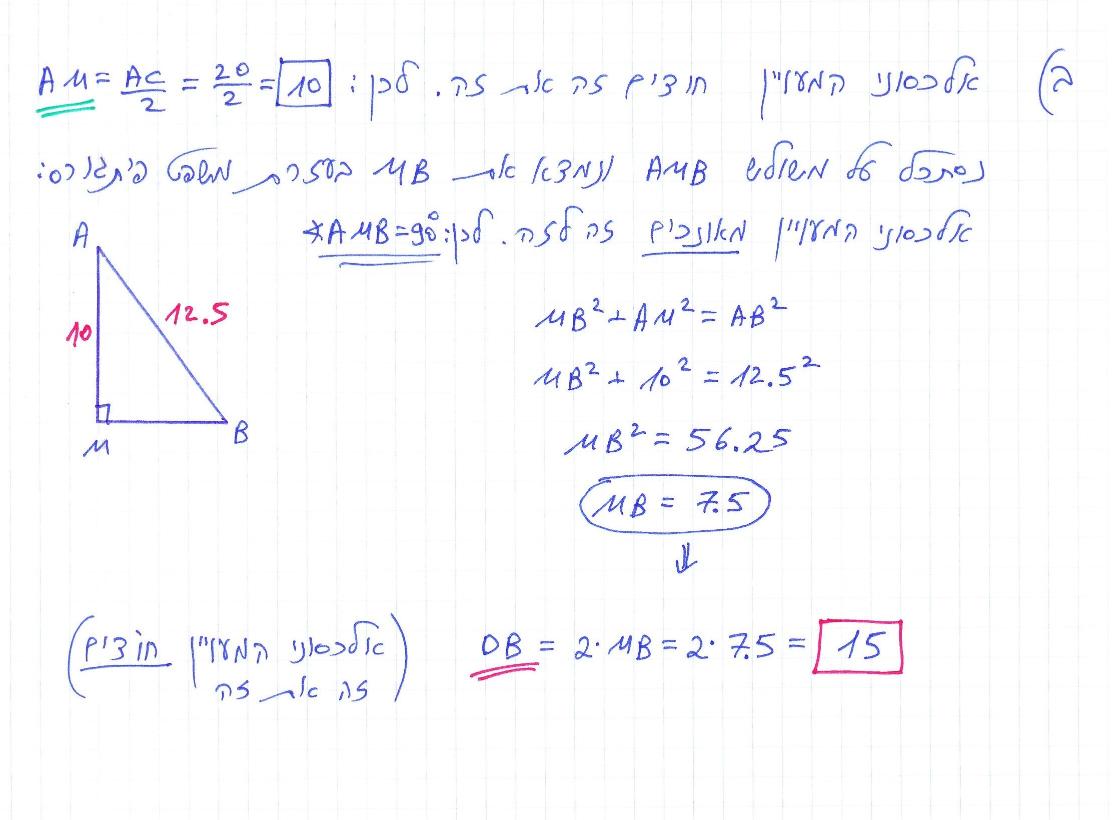 ב) אלכסוני המעויין חוצים זה את זה. לכן: AM = AC/2 = 20/2 = 10
נסתכל על משולש AMB ונמצא את MB בעזרת משפט פיתגורס:
אלכסוני המעויין מאונכים זה לזה. לכן: ∢AMB = 90°
A
10
12.5
M
B
MB² + AM² = AB²
MB² + 10² = 12.5²
MB² = 56.25
MB = 7.5
⇓
DB = 2·MB = 2·7.5 = 15
(אלכסוני המעויין חוצים
זה את זה)